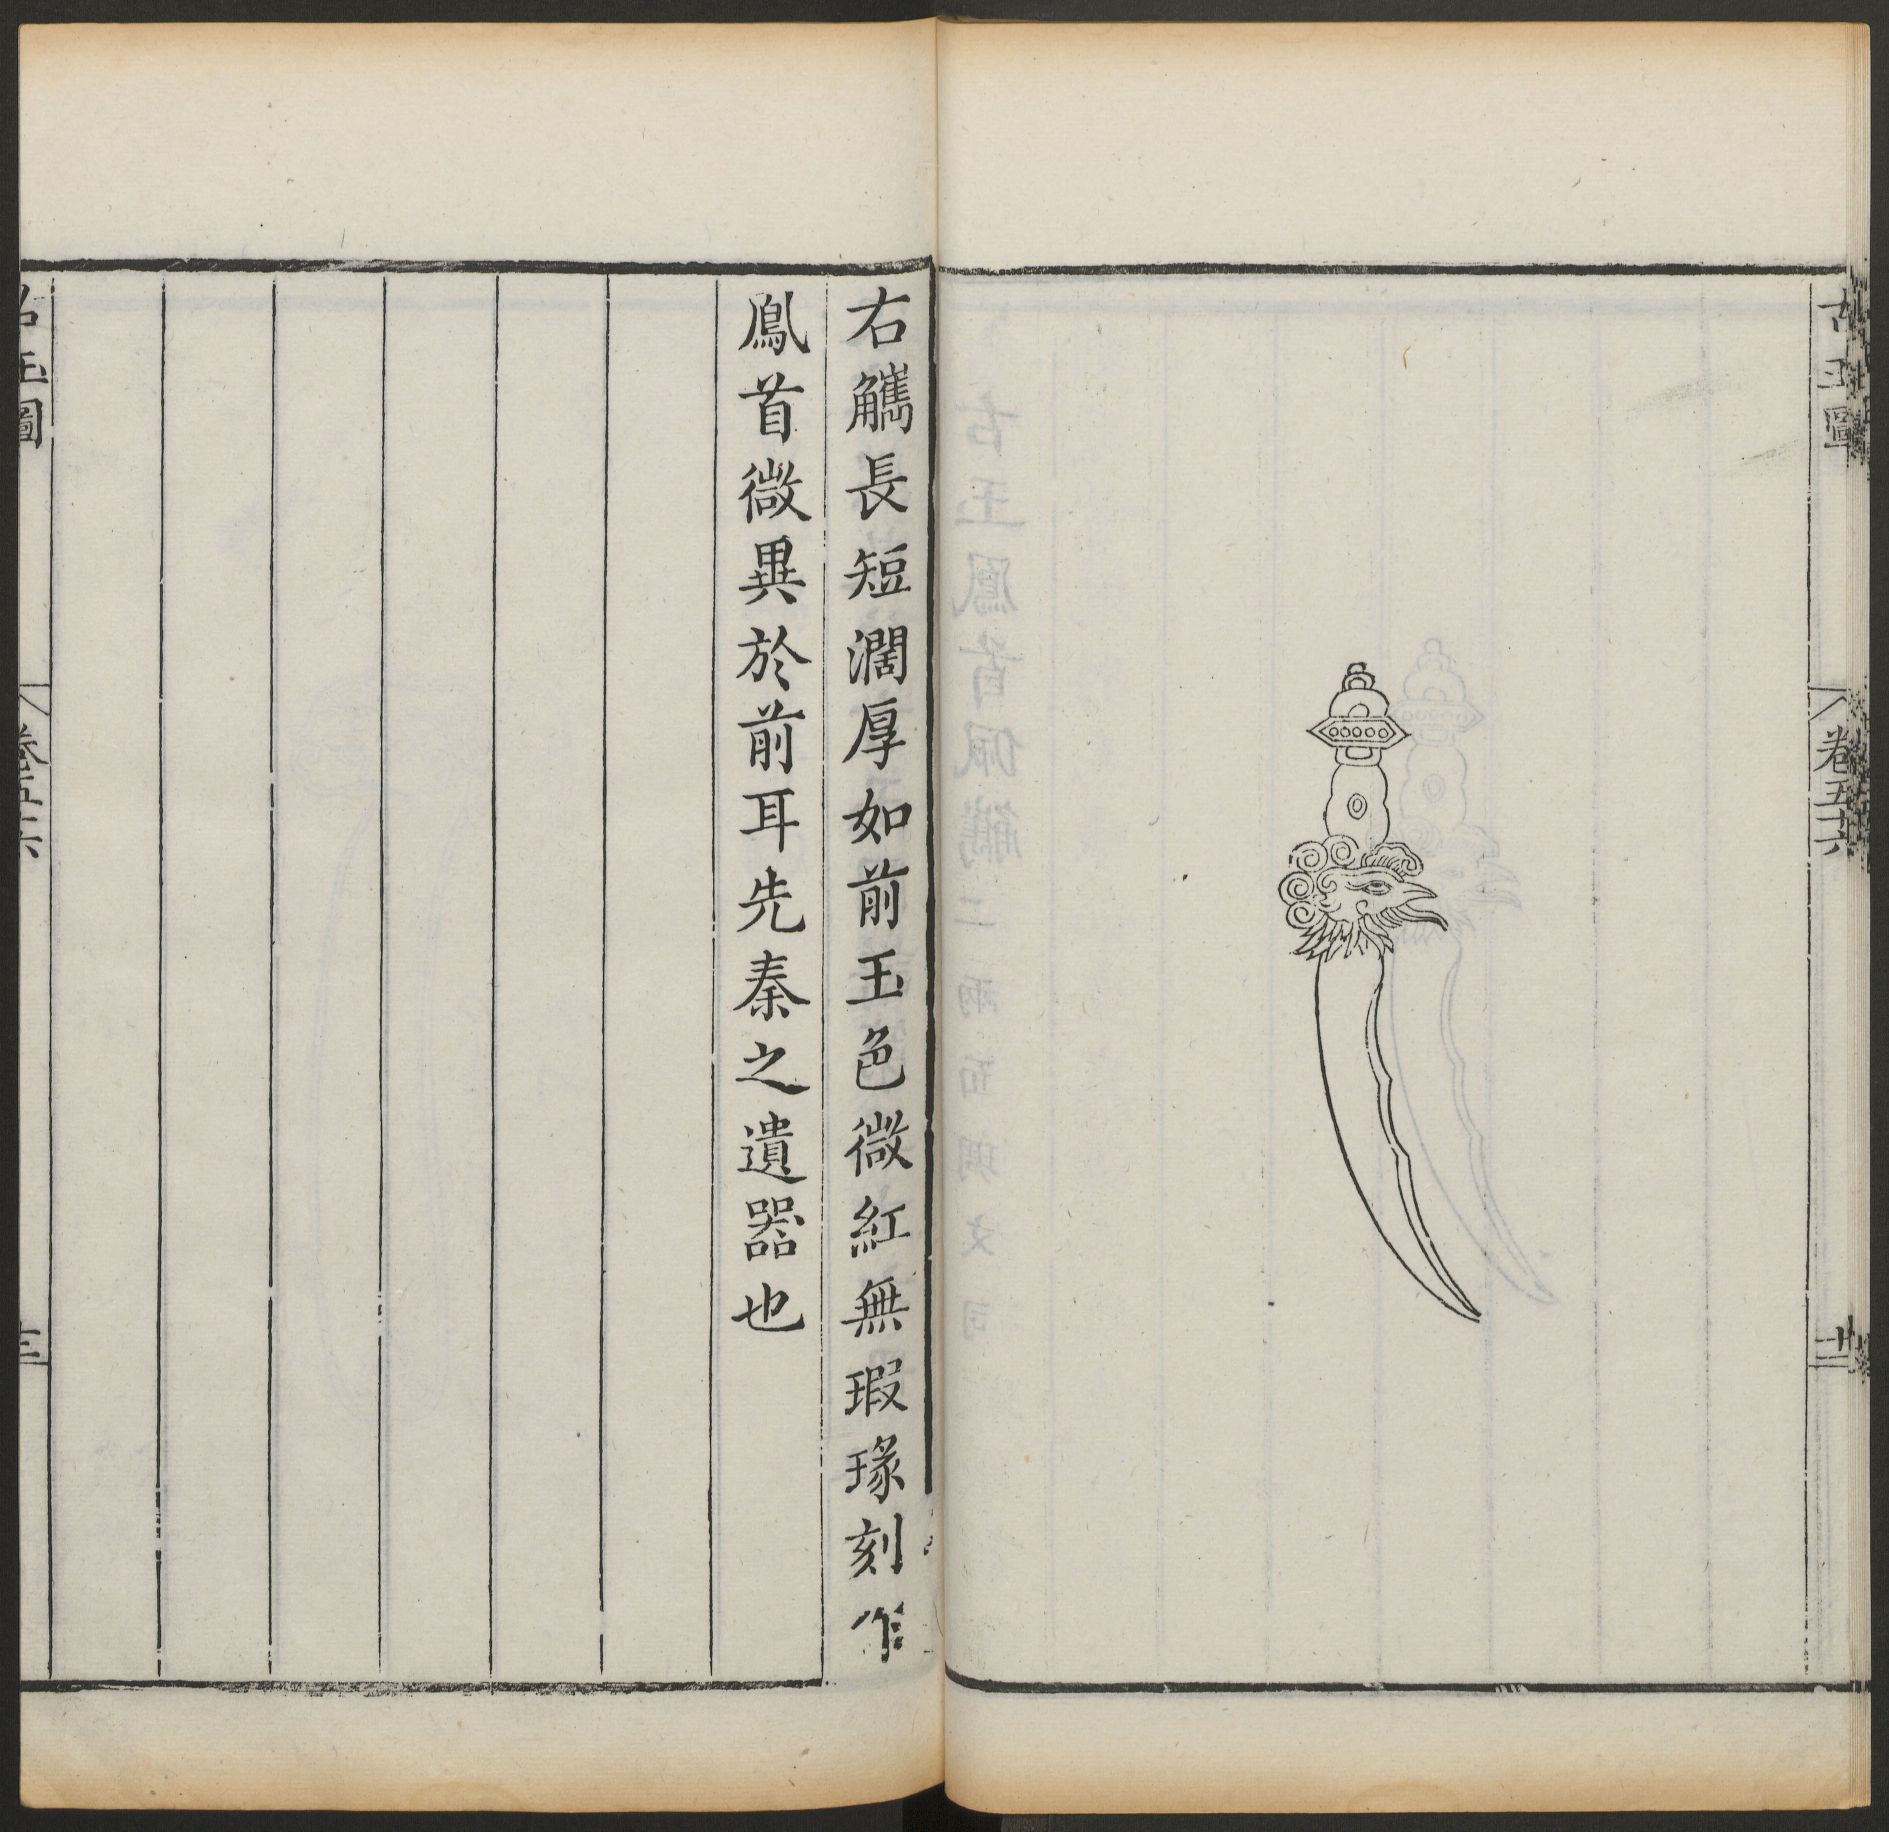 古玉圖
卷五六
十二
右觿長短濶厚如前玉色微紅無瑕瑑刻作
鳳首微異於前耳先秦之遺器也
古玉圖
卷五六
十三